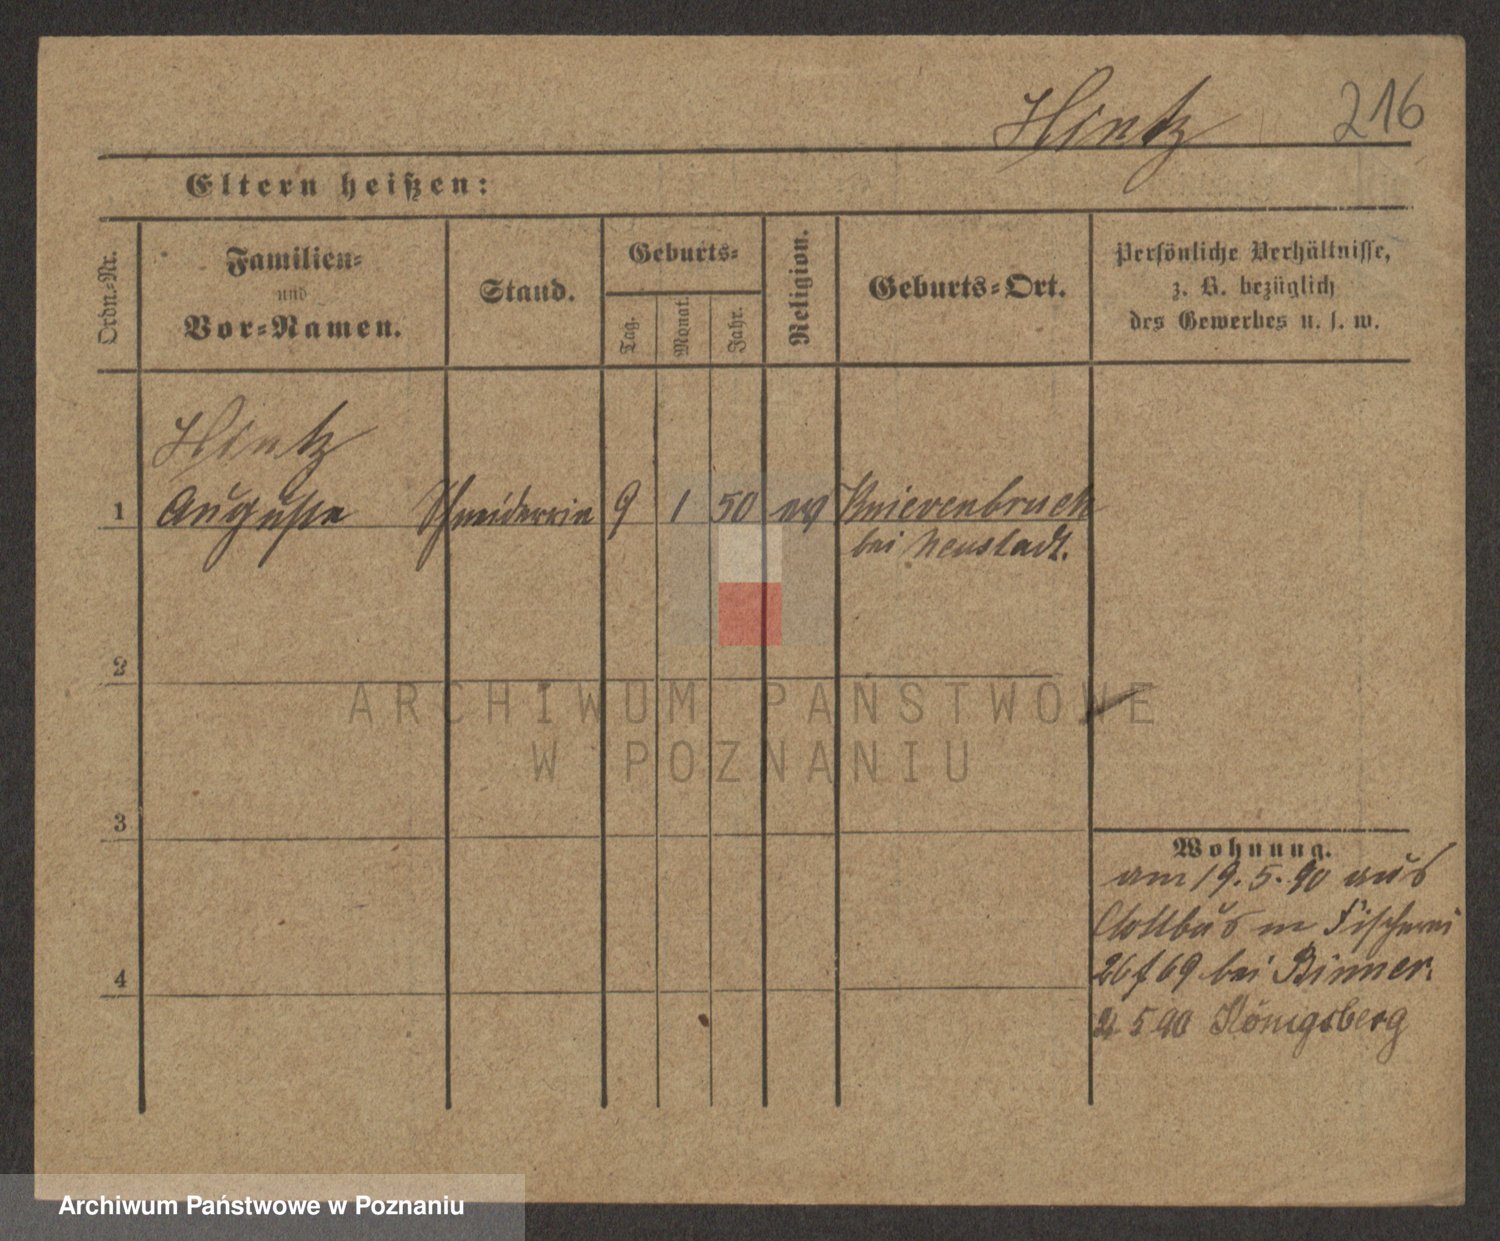 Hintz 216
Eltern heißen:
Ordn.-Nr.
Familien-
und
Vor-Namen.
Stand.
Geburts-
Tag.
Monat.
Jahr.
Religion.
Geburts-Ort.
Persönliche Verhältnisse,
z. B. bezüglich
des Gewerbes u. s. w.
Hintz
1 Auguste Schneiderin 9 1 50 ev Knievenbruch
bei Neustadt.
2
3
4
Wohnung.
am 19. 5. 90 aus
Cottbus in Fischerei
26 f 69 bei Binner.
5 90 Königsberg
ARCHIWUM PAŃSTWOWE
W POZNANIU
Archiwum Państwowe w Poznaniu